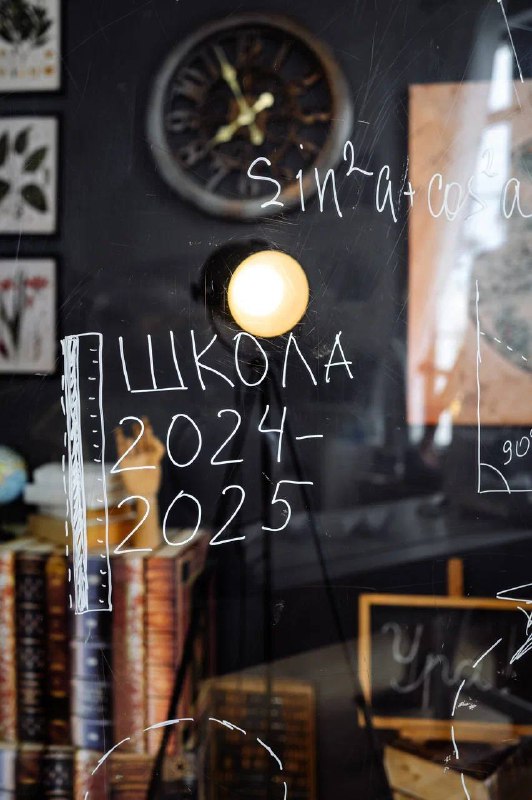 sin²a+cos²a
ШКОЛА
2024-
2025
90
Ура!